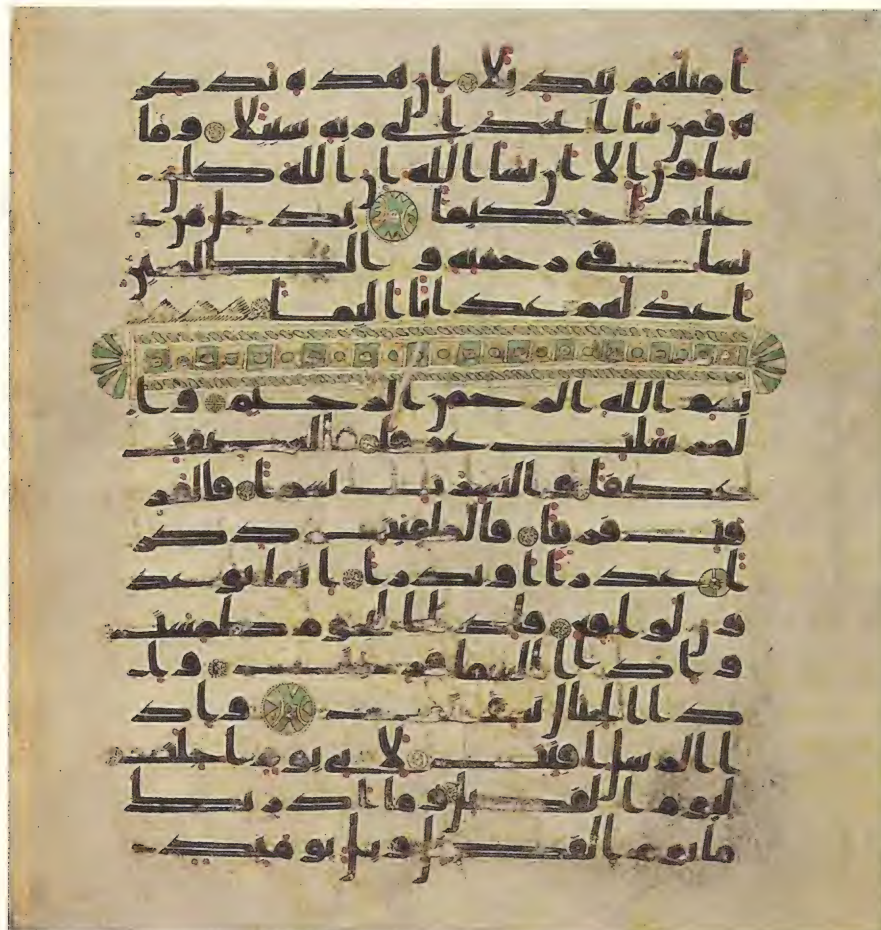 امثلهم تبديلا ان هذه تذكر
ة فمن شا اتخذ الى ربه سبيلا وما
تشاون الا ان يشا الله ان الله كان
عليما حكيما يدخل من
يشا في رحمته والظلمين
اعد لهم عذابا اليما
بسم الله الرحمن الرحيم وا
لمرسلت عرفا فالعصفت
عصفا والنشرت نشرا فالفر
قت فرقا فالملقيت ذكر
ا عذرا او نذرا انما توعد
ون لوقع فاذا النجوم طمست
واذا السما فرجت وا
ذا الجبال نسفت واذ
ا الرسل اقتت لاي يوم اجلت
ليوم الفصل وما ادريك
ما يوم الفصل ويل يومئذ